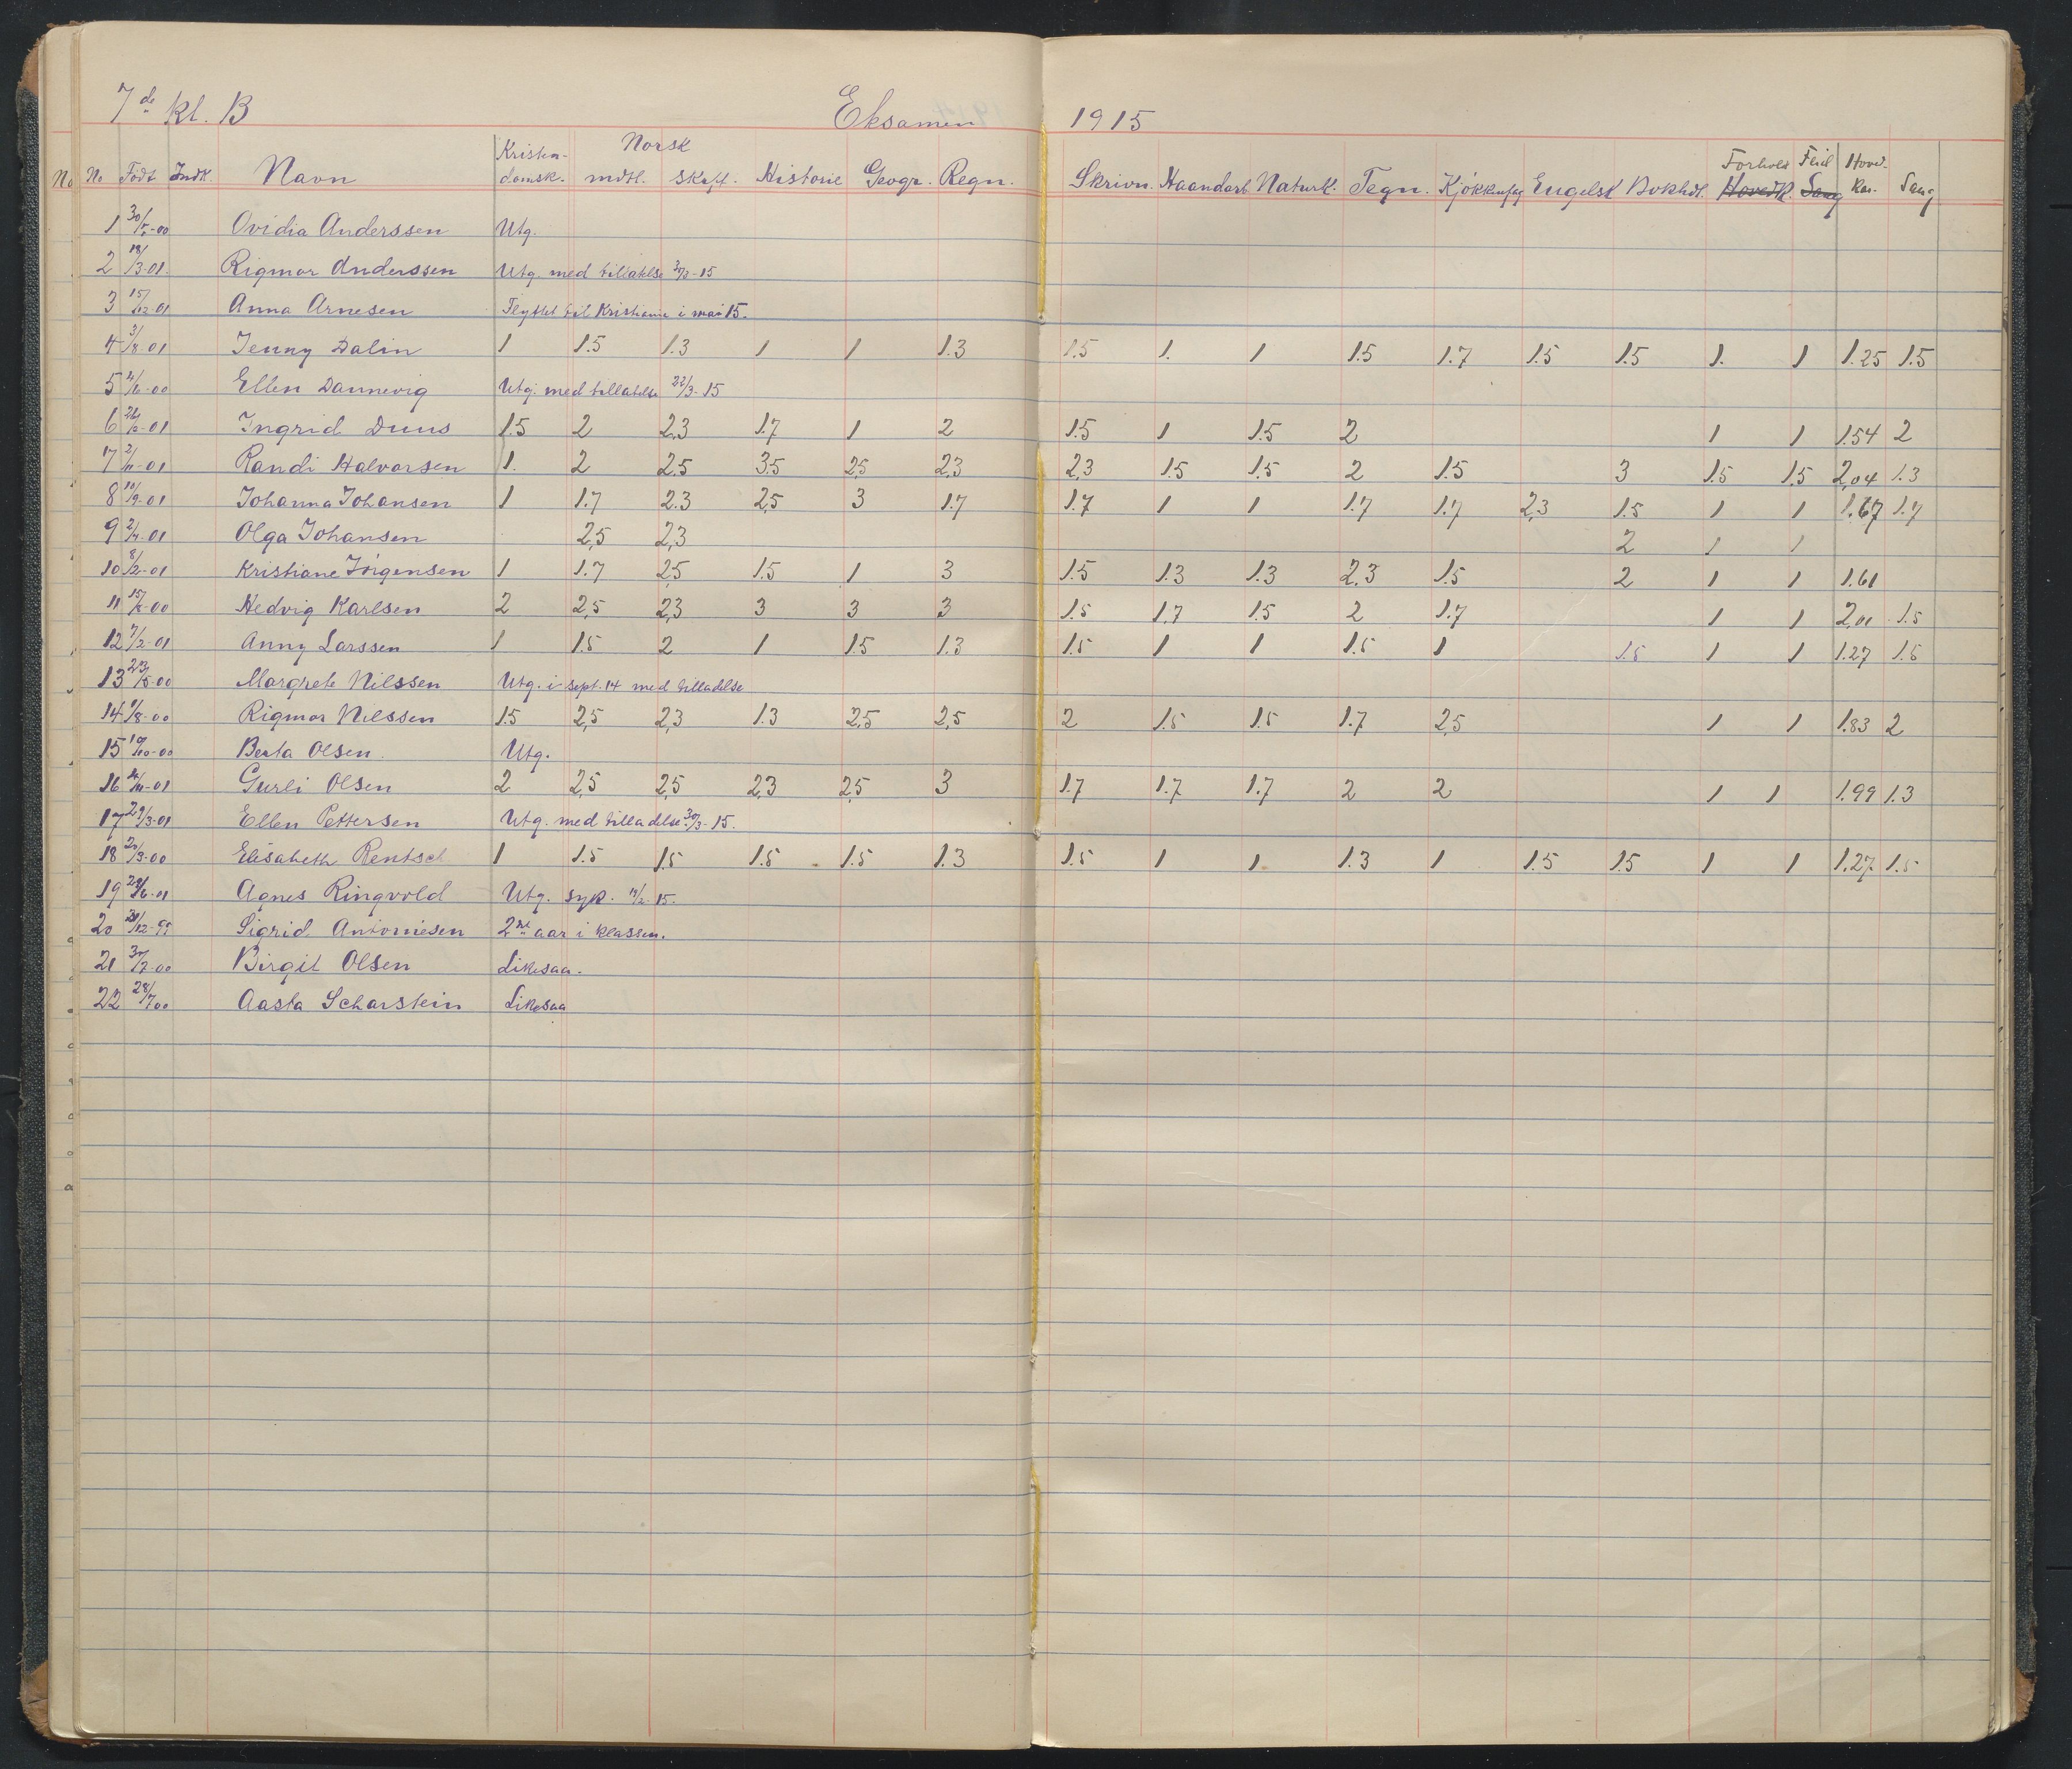 7de kl. B Eksamen 1915
Kristen- Norsk Forhold Flid Hoved-
No No Født Indk. Navn domsk. mdtl. skrftl. Historie Geogr. Regn. Skrivn. Haandarb. Naturk. Tegn. Kjøkkenfag Engelsk Bokhdl. Hovedk. Sang Kar. Sang
1 30/5-00 Ovidia Anderssen Utg.
2 18/3-01. Rigmor Anderssen Utg. med tillatelse 3/3-15
3 15/12-01 Anna Arnesen Flyttet til Kristiania i mai 15.
4 3/8-01 Jenny Dalin 1 1.5 1.3 1 1 1.3 1.5 1. 1 1.5 1.7 1.5 1.5 1. 1 1.25 1.5
5 4/6-00 Ellen Dannevig Utg. med tillatelse 22/3-15
6 01 Ingrid Duus 1.5 2 2,3 1.7 1 2 1.5 1 1.5 2 1 1 1.54 2
7 2/11-01 Randi Halvorsen 1. 2 2.5 3.5 2,5 2,3 2,3 1.5 1.5 2 1.5 3 1.5 1.5 2,04 1.3
8 10/9-01 Johanna Johansen 1 1.7 2.3 2,5 3 1.7 1.7 1 1 1.7 1.7 2,3 1.5 1 1 1.67 1.7
9 2/4-01 Olga Johansen 2,5 2,3 2 1 1
10 8/2-01 Kristiane Jörgensen 1 1.7 2,5 1.5 1 3 1.5 1.3 1.3 2,3 1.5 2 1 1 1.61
11 00 Hedvig Karlsen 2 2,5 2,3 3 3 3 1.5 1.7 1.5 2 1.7 1 1 2,01 1.5
12 7/2-01 Anny Larssen 1 1.5 2 1 1.5 1.3 1.5 1 1 1.5 1 1.5 1 1 1.27 1.5
13 23/5-00 Margrete Nilssen Utg. i sept. 14 med tilladelse
14 9/8-00 Rigmor Nilssen 1.5 2,5 2,3 1.3 2,5 2,5 2 1.5 1.5 1.7 2,5 1 1 1.83 2
15 10/10-00 Berta Olsen. Utg.
16 01 Gurli Olsen 2 2,5 2,5 2,3 2,5 3 1.7 1.7 1.7 2 2 1 1 1.99 1.3
17 29/3-01 Ellen Pettersen Utg. med tilladelse 30/3-15.
18 20/3-00 Elisabeth Rentsch 1 1.5 1.5 1.5 1.5 1.3 1.5 1 1. 1.3 1 1.5 1.5 1 1 1.27 1.5
19 28/6-01 Agnes Ringvold Utg. syk. 19/2-15.
20 30/12-99 Sigrid Antoniesen 2net aar i klassen.
21 30/7-00 Birgit Olsen Likesaa.
22 28/7 00 Aasta Scharstein Likesaa